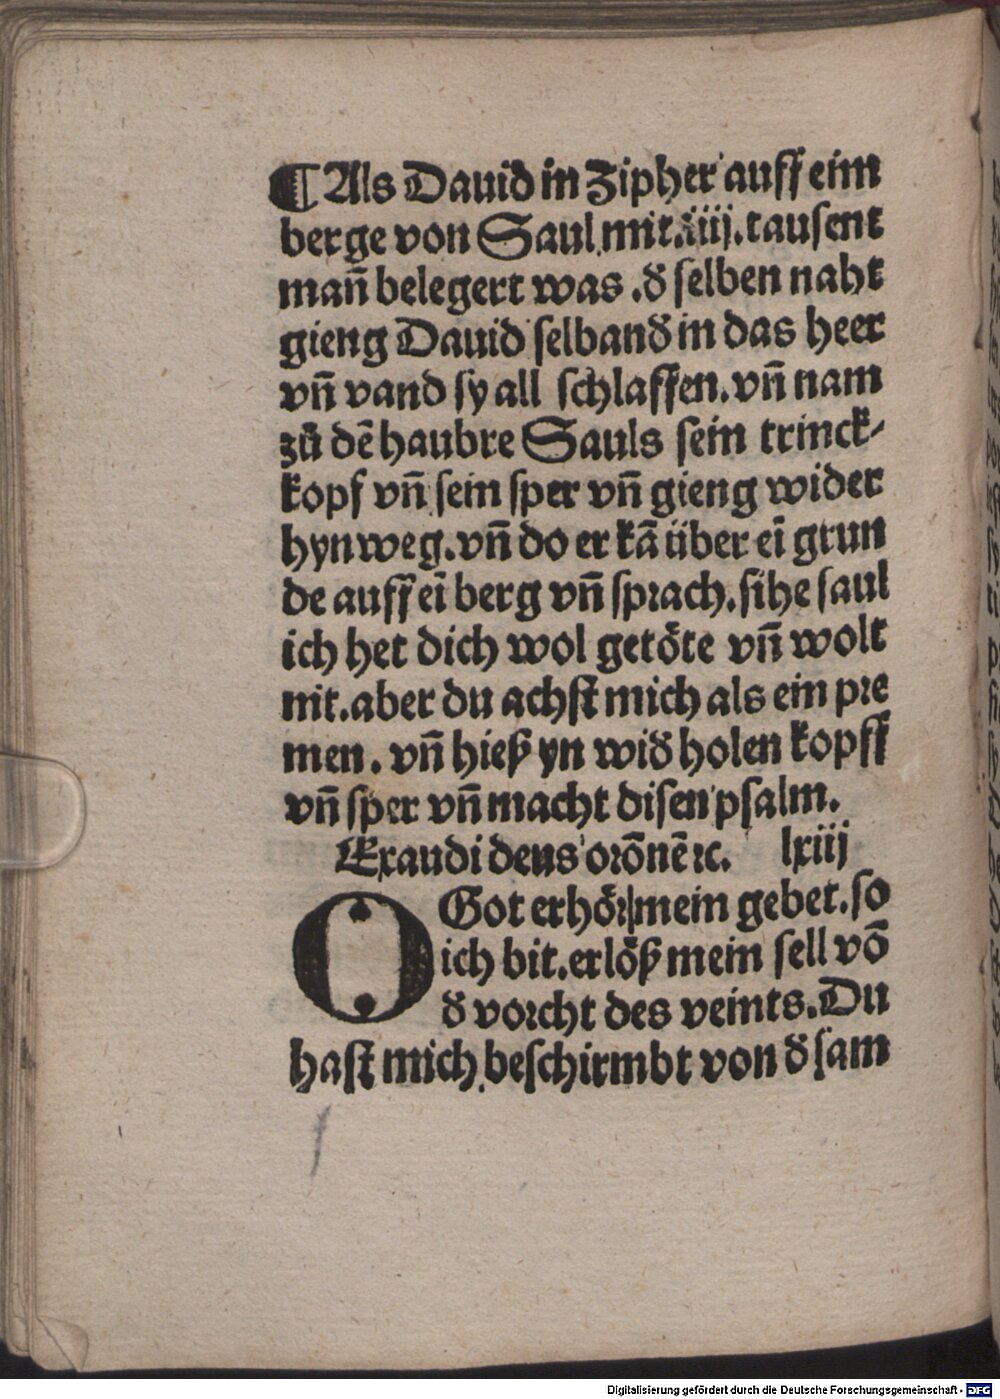 ¶ Als Dauid in Zipher auff eim
berge von Saul mit .iiij. tausent
mañ belegert was . đ selben naht
gieng Dauid selbanđ in das heer
vñ vand sy all schlaffen. vñ nam
zů dē haubre Sauls sein trinck⸗
kopf vñ sein sper vñ gieng wider
hynweg. vñ do er kā über eī grun
de auff eī berg vñ sprach. sihe saul
ich het dich wol getöte vñ wolt
nit. aber du achst mich als ein pre
men. vñ hieß yn wiđ holen kopff
vñ sper vñ macht disen psalm.
Exaudi deus orōnē ⁊c. lxiij
O Got erhör mein gebet. so
ich bit. erlöß mein sell vō
đ vorcht des veints. Du
hast mich beschirmbt von đ sam
Digitalisierung gefördert durch die Deutsche Forschungsgemeinschaft - DFG